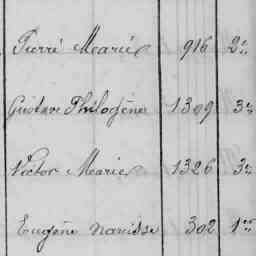 Pierre Marie 916 2e
Gustave Philogène 1309 3e
Victor Marie 1326 3e
Eugène Narcisse 302 1er